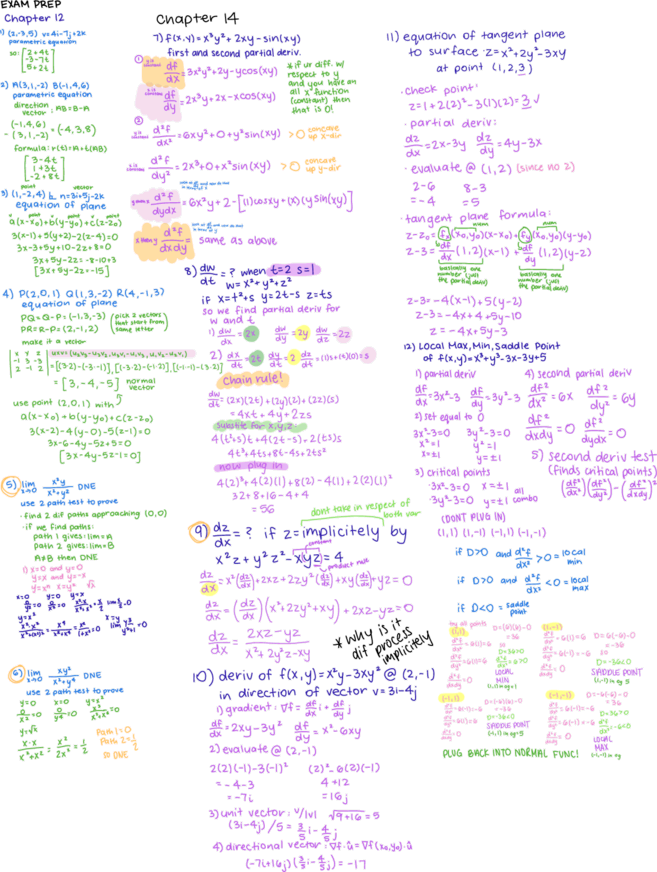 EXAM PREP
Chapter 12
1) (2,-3,5) v=4i-7j+2k
parametric equation
so: [2+4t
-3-7t
5+2t]
2) A(3,1,-2) B(-1,4,6)
parametric equation
direction vector: AB=B-A
(-1,4,6)
-(3,1,-2) =(-4,3,8)
formula: r(t)=A+t(AB)
[3-4t
1+3t
-2+8t]
point vector
3) (1,-2,4) ⊥ n=3i+5j-2k
equation of plane
a(x-x₀)+b(y-y₀)+c(z-z₀)
3(x-1)+5(y+2)-2(z-4)=0
3x-3+5y+10-2z+8=0
3x+5y-2z=-8-10+3
[3x+5y-2z=-15]
4) P(2,0,1) Q(1,3,-2) R(4,-1,3)
equation of plane
PQ=Q-P=(-1,3,-3)
PR=R-P=(2,-1,2)
pick 2 vectors that start from same letter
make it a vector
= [3,-4,-5] normal vector
use point (2,0,1) with
a(x-x₀)+b(y-y₀)+c(z-z₀)
3(x-2)-4(y-0)-5(z-1)=0
3x-6-4y-5z+5=0
[3x-4y-5z-1=0]
5) lim x→0 x²y/x²+y² DNE
use 2 path test to prove
· find 2 dif paths approaching (0,0)
· if we find paths:
path 1 gives: lim=A
path 2 gives: lim=B
A≠B then DNE
1) x=0 and y=0
y=x and y=-x
6) lim x→0 xy²/x²+y⁴ DNE
use 2 path test to prove
y=0 x=0
0/x²=0 0/y⁴=0
y=√x
x·x/x²+x² = x²/2x² = 1/2
Path 1=0
Path 2=1/2
so DNE
Chapter 14
7) f(x,y)=x³y²+2xy-sin(xy)
first and second partial deriv.
① df/dx=3x²y²+2y-ycos(xy)
df/dy=2x³y+2x-xcos(xy)
*if ur diff. w/ respect to y and you have an all x³ function (constant) then that is 0!
② d²f/dx²=6xy²+0+y²sin(xy) >0 concave up x-dir
d²f/dy²=2x³+0+x²sin(xy) >0 concave up y-dir
d²f/dydx=6x²y+2-[(1)cosxy+(x)(ysin(xy)]
d²f/dxdy= same as above
8) dw/dt=? when t=2 s=1
w=x²+y²+z²
if x=t²+s y=2t-s z=ts
so we find partial deriv for
w and t
1) dw/dx=2x dw/dy=2y dw/dz=2z
2) dx/dt=2t dy/dt=2 dz/dt=(1)s+t(0)=s
Chain rule!
dw/dt=(2x)(2t)+(2y)(2)+(2z)(s)
=4xt+4y+2zs
4(t²+s)t+4(2t-s)+2(ts)s
4t³+4ts+8t-4s+2ts²
now plug in
4(2)³+4(2)(1)+8(2)-4(1)+2(2)(1)²
32+8+16-4+4
=56
dont take in respect of both var
9) dz/dx=? if z=implicitely by
x²z+y²z²-xyz=4
constant
product rule
dz/dx=x²(dz/dx)+2xz+2zy²(dz/dx)+xy(dz/dx)+yz=0
dz/dx=(dz/dx)(x²+2zy²+xy)+2xz-yz=0
dz/dx=2xz-yz/x²+2y²z-xy
*why is it dif process implicitely
10) deriv of f(x,y)=x²y-3xy² @ (2,-1)
in direction of vector v=3i-4j
1) gradient: ∇f=df/dx i+df/dy j
df/dx=2xy-3y² df/dy=x²-6xy
2) evaluate @ (2,-1)
2(2)(-1)-3(-1)² (2)²-6(2)(-1)
=-4-3 4+12
=-7i =16j
3) unit vector: v/|v| √9+16=5
(3i-4j)/5=3/5i-4/5j
4) directional vector: ∇f·û=∇f(x₀,y₀)·û
(-7i+16j)(3/5i-4/5j)=-17
11) equation of tangent plane
to surface z=x²+2y²-3xy
at point (1,2,3)
·check point:
z=1+2(2)²-3(1)(2)=3✓
·partial deriv:
dz/dx=2x-3y dz/dy=4y-3x
·evaluate @ (1,2) (since no z)
2-6 8-3
=-4 =5
·tangent plane formula:
z-z₀=fx(x₀,y₀)(x-x₀)+fy(x₀,y₀)(y-y₀)
z-3=df/dx(1,2)(x-1)+df/dy(1,2)(y-2)
basically one number (just the partial deriv) basically one number (just the partial deriv)
z-3=-4(x-1)+5(y-2)
z-3=-4x+4+5y-10
z=-4x+5y-3
12) Local Max, Min, Saddle Point
of f(x,y)=x³+y³-3x-3y+5
1) partial deriv
df/dx=3x²-3 df/dy=3y²-3
2) set equal to 0
3x²-3=0 3y²-3=0
x²=1 y²=1
x=±1 y=±1
3) critical points
·3x²-3=0 x=±1
·3y²-3=0 y=±1
all combo
(DONT PLUG IN)
(1,1) (1,-1) (-1,1) (-1,-1)
4) second partial deriv
df²/dx²=6x df²/dy²=6y
df²/dxdy=0 df²/dydx=0
5) second deriv test
(finds critical points)
(df²/dx²)(df²/dy²)-(df²/dxdy)²
if D>0 and d²f/dx²>0=local min
if D>0 and d²f/dx²<0=local max
if D<0=saddle point
try all points
(1,1)
D=(6)(6)-0
=36
LOCAL MIN
(1,-1)
D=(6)(-6)-0
=-36
SADDLE POINT
(-1,1)
SADDLE POINT
(-1,-1)
LOCAL MAX
PLUG BACK INTO NORMAL FUNC!